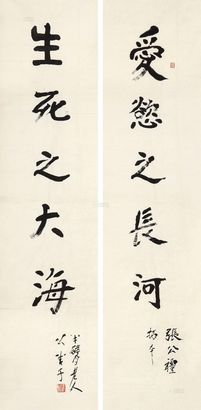 愛慾之長河
張公禮
生死之大海
半聾老人